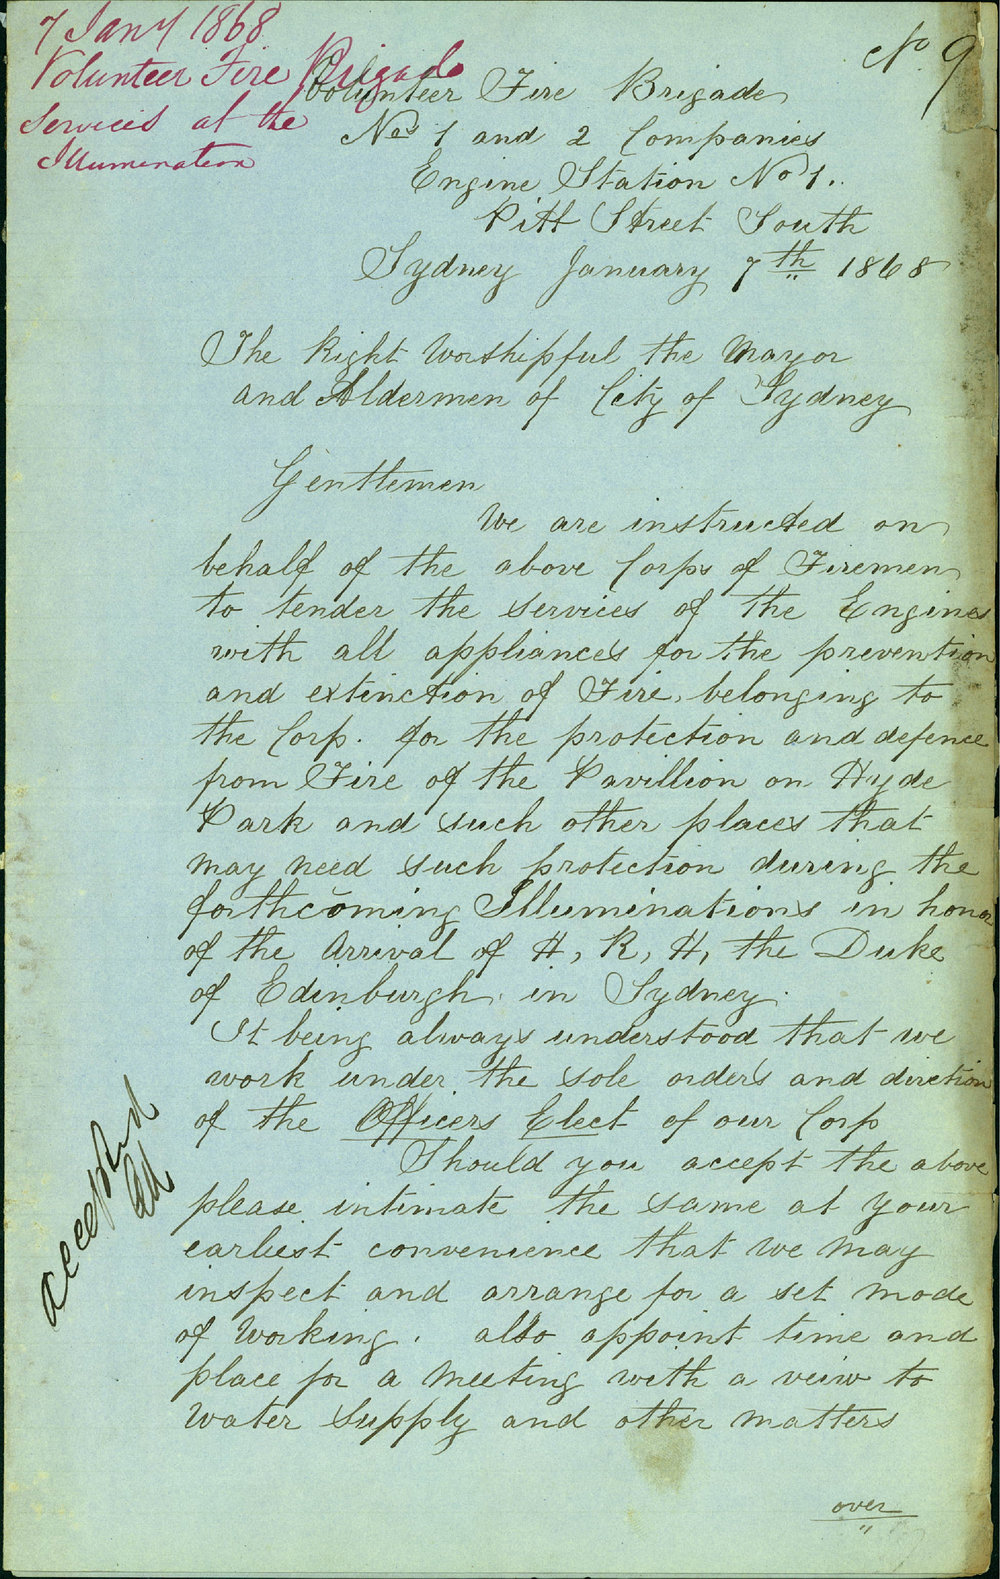 7 Jany 1868
Volunteer Fire Brigade
Services at the
Illumination
No. 9
Volunteer Fire Brigade
Nos 1 and 2 Companies
Engine Station No 1.
Pitt Street South
Sydney January 7th 1868
The Right Worshipful the Mayor
and Aldermen of City of Sydney
Gentlemen
We are instructed on
behalf of the above Corps of Firemen
to tender the services of the Engines
with all appliances for the prevention
and extinction of Fire, belonging to
the Corp. for the protection and defence
from Fire of the Pavillion on Hyde
Park and such other places that
may need such protection during the
forthcoming Illuminations in honor
of the Arrival of H, R, H, the Duke
of Edinburgh. in Sydney.
It being always understood that we
work under the sole orders and direction
of the Officers Elect of our Corp
Should you accept the above
please intimate the same at your
earliest convenience that we may
inspect and arrange for a set mode
of working. also appoint time and
place for a meeting with a veiw to
water supply and other matters
over
accepted